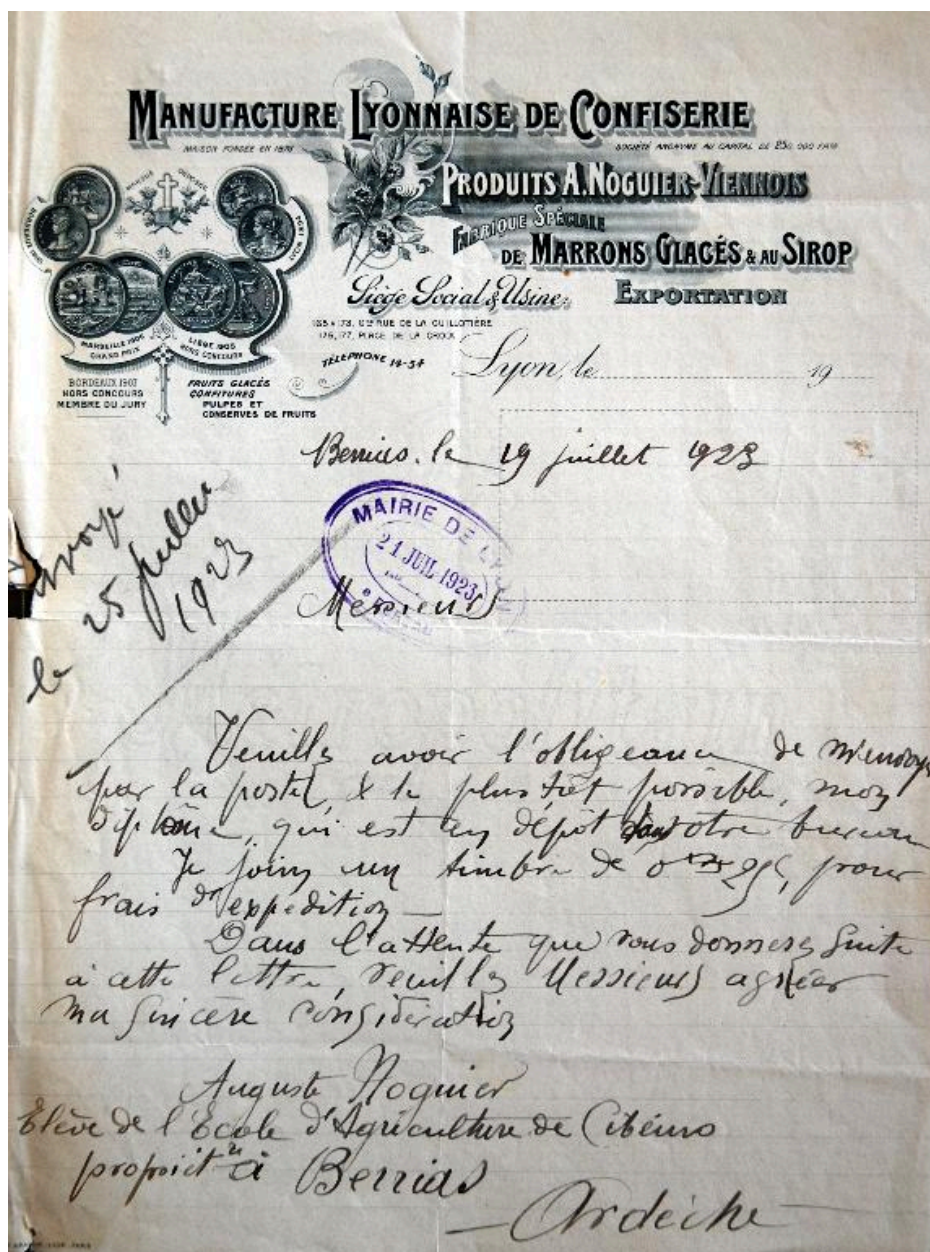 MANUFACTURE LYONNAISE DE CONFISERIE
MAISON FONDÉE EN 1878
SOCIÉTÉ ANONYME AU CAPITAL DE 250.000 FRS
PRODUITS A. NOGUIER-VIENNOIS
FABRIQUE SPÉCIALE
DE MARRONS GLACÉS & AU SIROP
EXPORTATION
Siège Social & Usine:
PLACE DE LA CROIX
TÉLÉPHONE 14-54
MARSEILLE 1906
GRAND PRIX
LIÈGE 1905
HORS CONCOURS
BORDEAUX 1907
HORS CONCOURS
MEMBRE DU JURY
FRUITS GLACÉS
CONFITURES
PULPES ET
CONSERVES DE FRUITS
Lyon, le 19
Berrias. le 19 juillet 1923
MAIRIE DE LYON
21 JUIL 1923
envoyé
le 25 juillet
1923
Messieurs
Veuillez avoir l'obligeance de m'envoyer
par la poste, & le plus tôt possible, mon
diplôme, qui est en dépôt dans votre bureau
Je joins un timbre de 0 25, pour
frais d'expédition
Dans l'attente que vous donnerez suite
à cette lettre, veuillez Messieurs agréer
ma sincère considération
Auguste Noguier
Elève de l'Ecole d'Agriculture de Cibeins
propriét re à Berrias
Ardèche